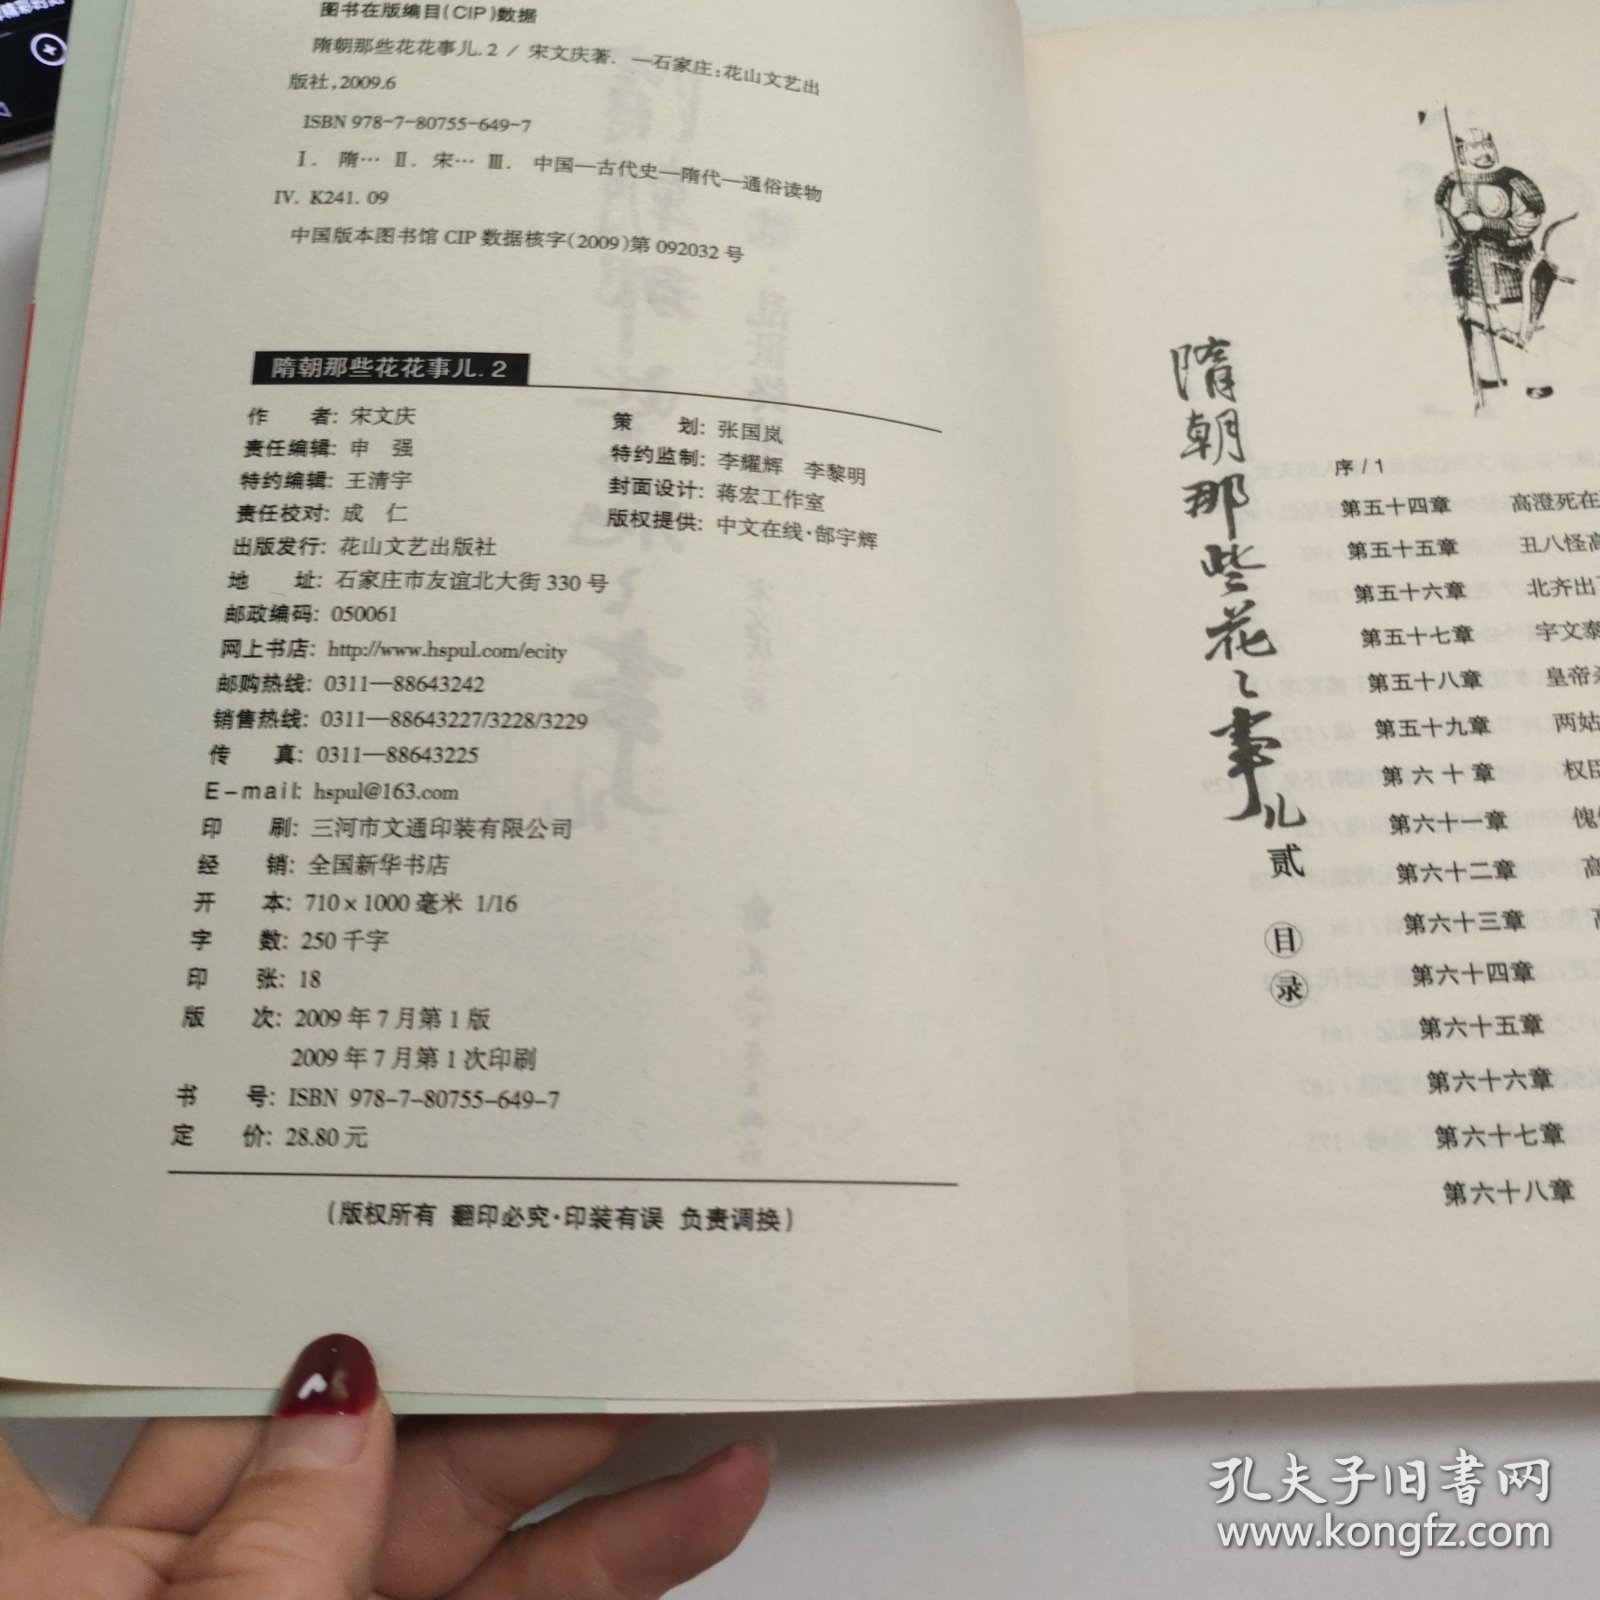 图书在版编目(CIP)数据
隋朝那些花花事儿.2 / 宋文庆著. —石家庄:花山文艺出
版社,2009.6
ISBN 978-7-80755-649-7
Ⅰ. 隋… Ⅱ. 宋… Ⅲ. 中国—古代史—隋代—通俗读物
Ⅳ. K241.09
中国版本图书馆 CIP 数据核字(2009)第 092032 号
隋朝那些花花事儿.2
作 者: 宋文庆
责任编辑: 申 强
特约编辑: 王清宇
责任校对: 成 仁
策 划: 张国岚
特约监制: 李耀辉 李黎明
封面设计: 蒋宏工作室
版权提供: 中文在线·郜宇辉
出版发行: 花山文艺出版社
地 址: 石家庄市友谊北大街 330 号
邮政编码: 050061
网上书店: http://www.hspul.com/ecity
邮购热线: 0311—88643242
销售热线: 0311—88643227/3228/3229
传 真: 0311—88643225
E-mail: hspul@163.com
印 刷: 三河市文通印装有限公司
经 销: 全国新华书店
开 本: 710×1000 毫米 1/16
字 数: 250 千字
印 张: 18
版 次: 2009 年 7 月第 1 版
2009 年 7 月第 1 次印刷
书 号: ISBN 978-7-80755-649-7
定 价: 28.80 元
(版权所有 翻印必究·印装有误 负责调换)
隋朝那些花花事儿贰
目录
序 / 1
第五十四章 高澄死在
第五十五章 丑八怪高
第五十六章 北齐出了
第五十七章 宇文泰
第五十八章 皇帝
第五十九章 两姑
第六十章 权臣
第六十一章 傀
第六十二章 高
第六十三章
第六十四章
第六十五章
第六十六章
第六十七章
第六十八章
孔夫子旧书网
www.kongfz.com